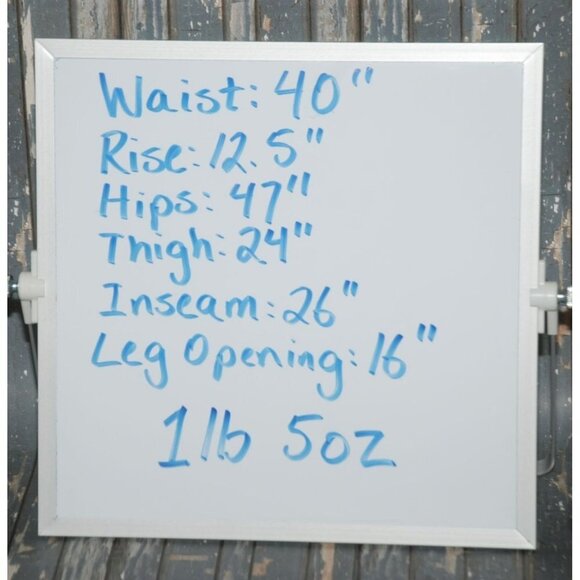 Waist: 40"
Rise: 12.5"
Hips: 47"
Thigh: 24"
Inseam: 26"
Leg Opening: 16"
1lb 5oz